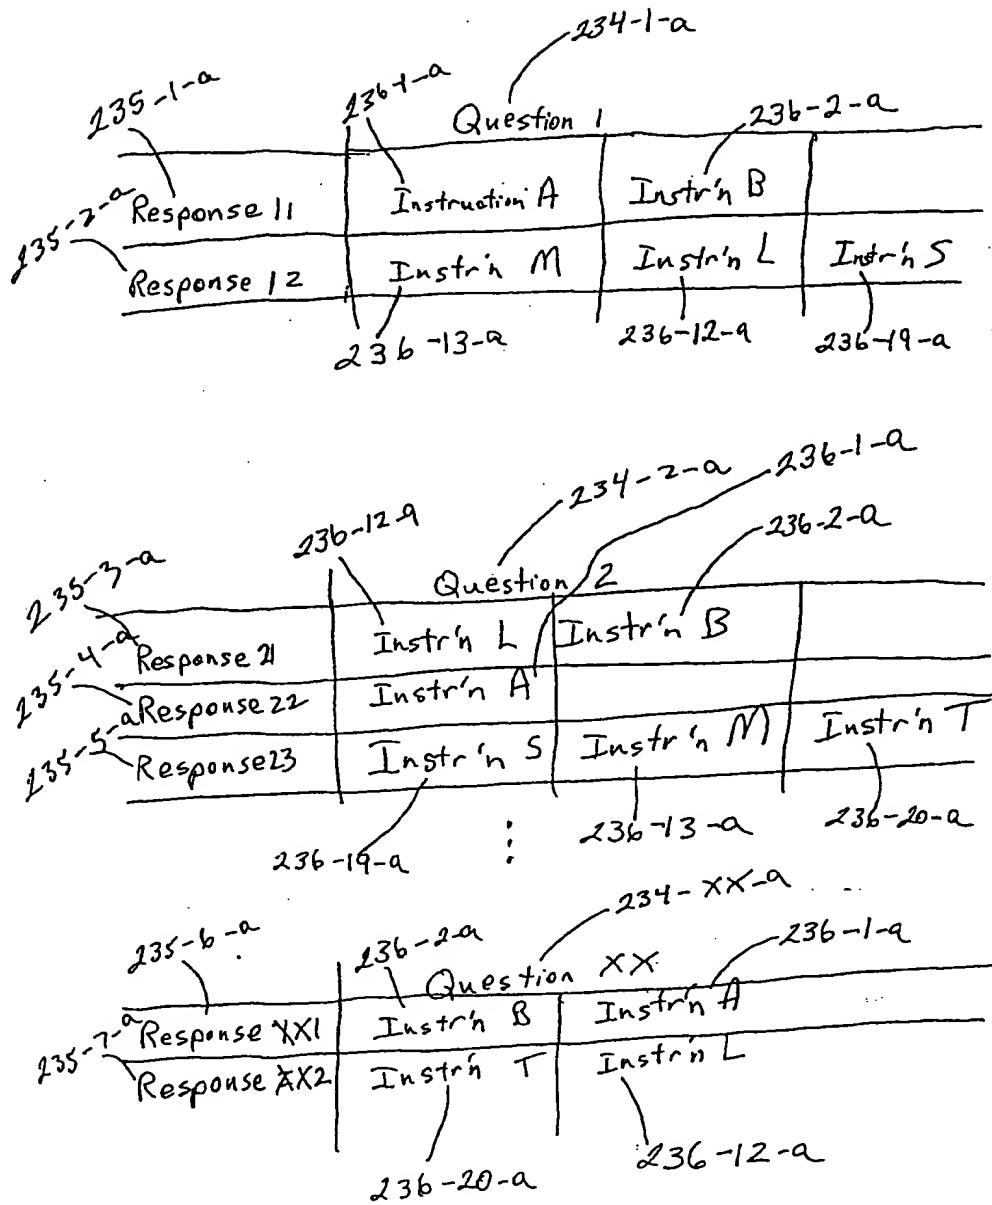 234-1-a
235-1-a 236-1-a
Question 1 236-2-a
Response 11 Instruction A Instr'n B
235-2-a
Response 12 Instr'n M Instr'n L Instr'n S
236-13-a 236-12-a 236-19-a
236-1-a
234-2-a
236-12-a 236-2-a
235-3-a Question 2
Response 21 Instr'n L Instr'n B
235-4-a
Response 22 Instr'n A
235-5-a
Response 23 Instr'n S Instr'n M Instr'n T
236-19-a 236-13-a 236-20-a
234-XX-a
235-6-a 236-2-a 236-1-a
Question XX
Response XX1 Instr'n B Instr'n A
235-7-a
Response XX2 Instr'n T Instr'n L
236-20-a 236-12-a